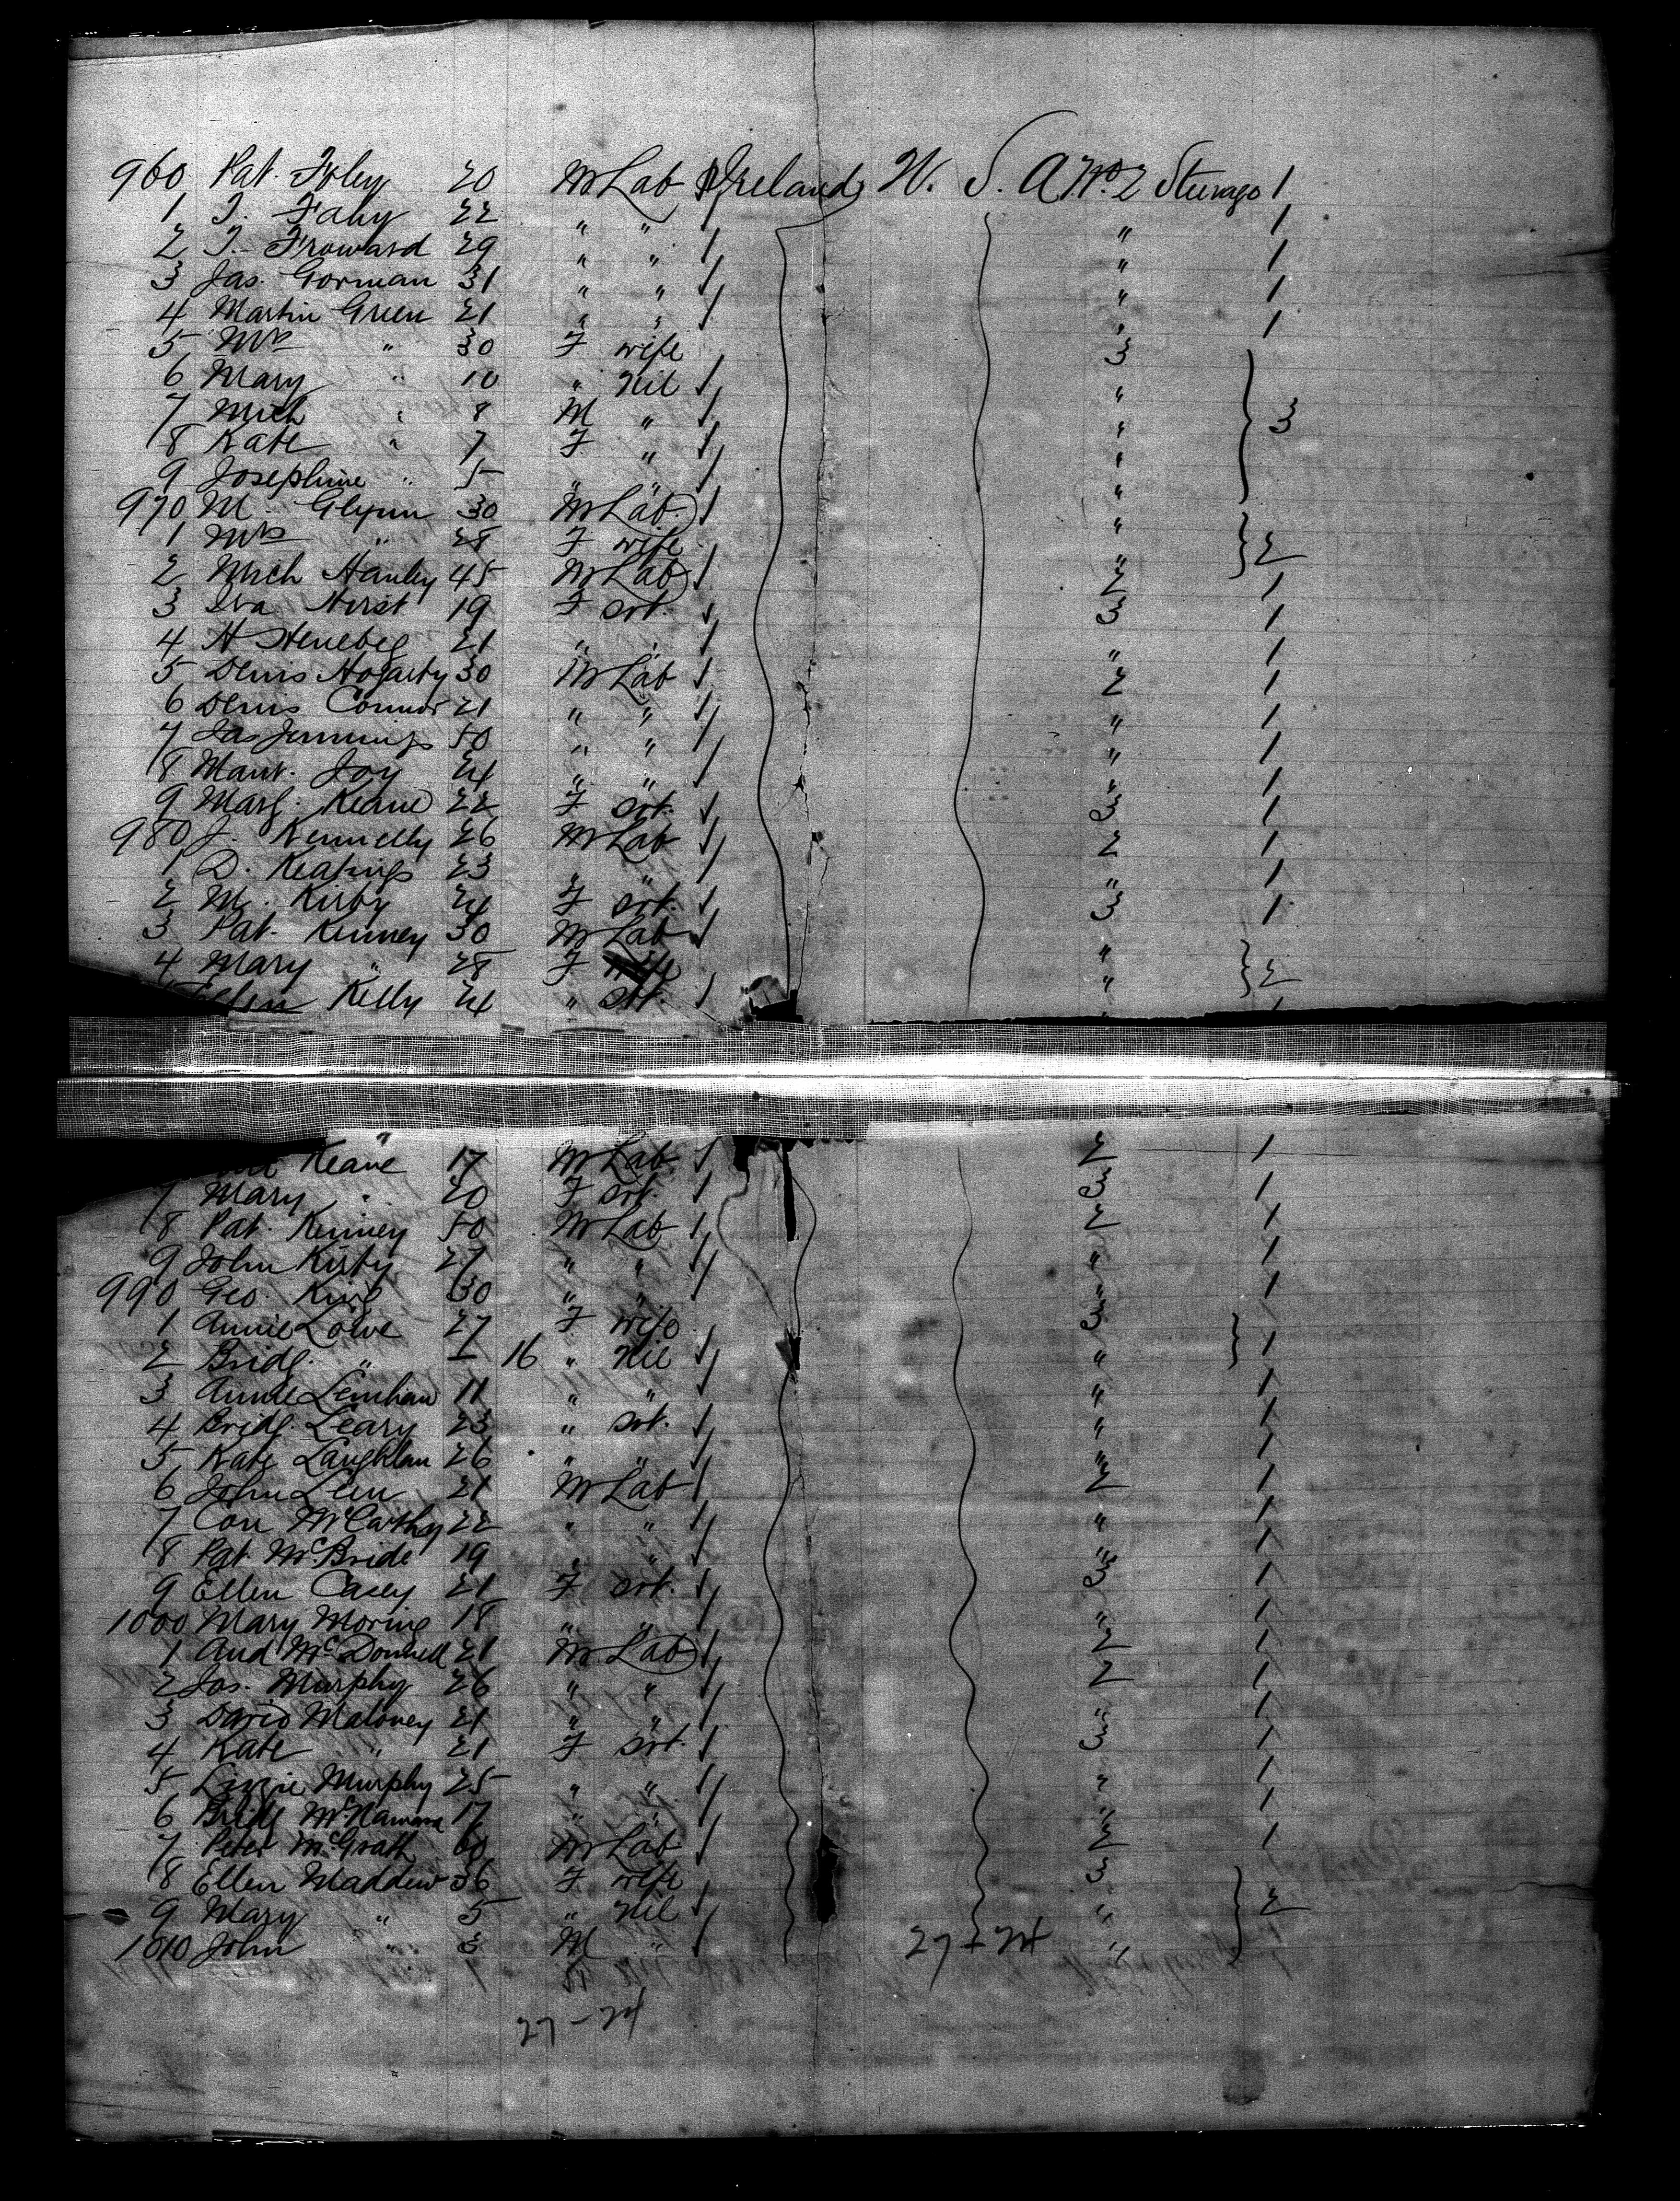 960 Pat. Foley 20 M Lab Ireland U. S. A No. 2 Steerage 1
1 T. Fahy 22 " " "  1
2 T. Froward 29 " " " 1
3 Jas. Gorman 31 " " " 1
4 Martin Green 21 " " " 1
5 Mrs " 30 F wife 3
6 Mary " 10 " Nil "
7 Mich " 8 M " " 3
8 Kate " 7 F " "
9 Josephine " 5 " " "
970 M. Glynn 30 M Lab. "
1 Mrs " 28 F wife " 2
2 Mich Hanley 45 M Lab 2 1
3 Iva Hirst 19 F Srt. 3 1
4 H 21 " " " 1
5 Denis Hogarty 30 M Lab 2 1
6 Denis Connor 21 " " " 1
7 Jas Jennings 50 " " " 1
8 Maur. Joy 24 " " " 1
9 Marg. Keane 22 F Srt. 3 1
980 J. Kennelly 26 M Lab 2 1
1 D. Keatings 23 " " " 1
2 M. Kirby 24 F Srt. 3 1
3 Pat. Kinney 30 M Lab "
4 Mary " 28 F " 2
Ellen Kelly 24 " Srt.
Keane 17 M Lab. 2 1
7 Mary " 20 F Srt. 3 1
8 Pat. Kinney 50 M Lab 2 1
9 John Kirby 27 " " " 1
990 Geo. King 30 " " " 1
1 Annie Lowe 27 F wife 3
2 Bridg. " 16 " Nil " 1
3 Annie Lenihan 11 " " " 1
4 Bridg. Leary 23 " Srt. " 1
5 Kate Laughlan 26 " " " 1
6 John Leen 21 M Lab 2 1
7 Con McCarthy 22 " " " 1
8 Pat. McBride 19 " " " 1
9 Ellen Casey 21 F Srt. 3 1
1000 Mary 18 " " " 1
1 And McDonnell 21 M Lab 2 1
2 Jas. Murphy 26 " " 2 1
3 David Maloney 21 " " " 1
4 Kate " 21 F Srt. 3 1
5 Lizzie Murphy 25 " " " 1
6 Bridg McNamara 17 " " " 1
7 Peter McGrath 60 M Lab 2 1
8 Ellen Madden 36 F wife 3
9 Mary " 5 " Nil " 2
1010 John " 3 M " "
27 + 24
27 - 24